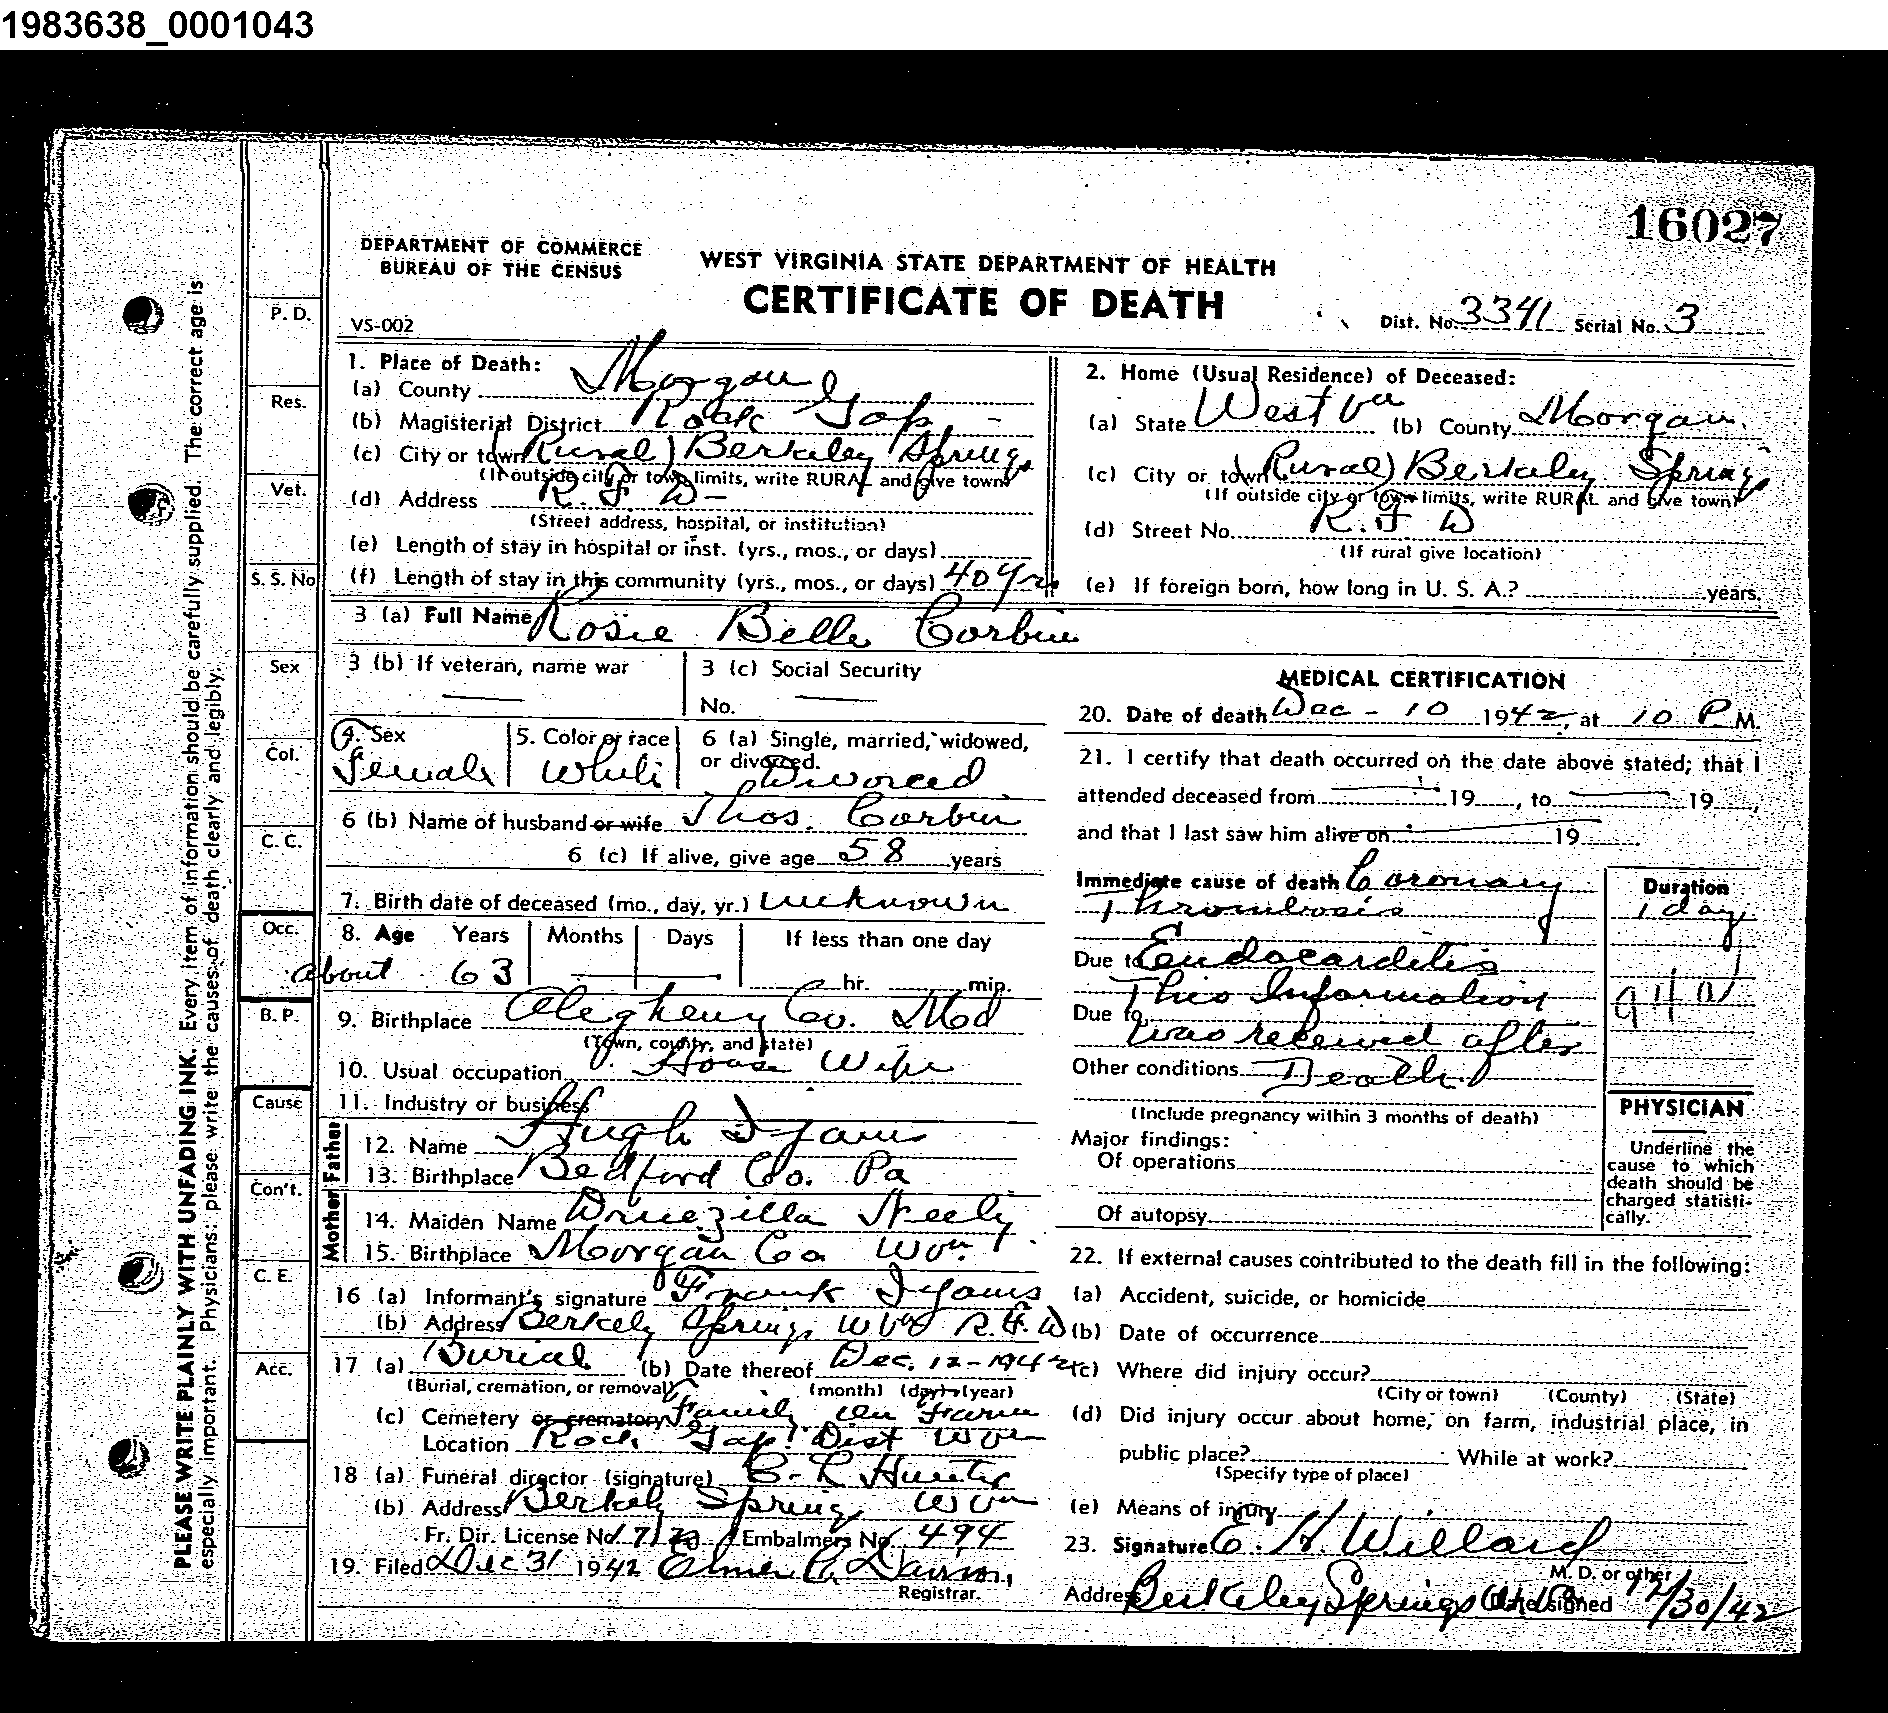 1983638_0001043
16027
DEPARTMENT OF COMMERCE
BUREAU OF THE CENSUS
WEST VIRGINIA STATE DEPARTMENT OF HEALTH
CERTIFICATE OF DEATH
VS-002
Dist. No. 3341 Serial No. 3
1. Place of Death:
(a) County Morgan
(b) Magisterial District Rock Gap -
(c) City or town (Rural) Berkeley Springs
(If outside city or town limits, write RURAL and give town)
(d) Address R. F D -
(Street address, hospital, or institution)
(e) Length of stay in hospital or inst. (yrs., mos., or days)
(f) Length of stay in this community (yrs., mos., or days) 40 yrs
2. Home (Usual Residence) of Deceased:
(a) State West Va (b) County Morgan
(c) City or town (Rural) Berkeley Springs
(If outside city or town limits, write RURAL and give town)
(d) Street No. R. F D
(If rural give location)
(e) If foreign born, how long in U. S. A.? years.
3 (a) Full Name Rosie Belle Corbin
3 (b) If veteran, name war
3 (c) Social Security
No.
4. Sex
Female
5. Color or race
White
6 (a) Single, married, widowed,
or divorced.
Divorced
6 (b) Name of husband or wife Thos. Corbin
6 (c) If alive, give age 58 years
7. Birth date of deceased (mo., day, yr.) Unknown
8. Age Years Months Days If less than one day
about 63 hr. min.
9. Birthplace Alegheny Co. Md
(Town, county, and state)
10. Usual occupation House Wife
11. Industry or business
Father
12. Name Hugh Iyams
13. Birthplace Bedford Co. Pa
Mother
14. Maiden Name Druezilla Neely
15. Birthplace Morgan Co WVa
16 (a) Informant's signature Frank Iyams
(b) Address Berkely Springs W Va R.F.D
17 (a) Burial (b) Date thereof Dec. 12-1942
(Burial, cremation, or removal) (month) (day) (year)
(c) Cemetery or crematory Family on Farm
Location Rock Gap Dist W Va
18 (a) Funeral director (signature) C. L Hunter
(b) Address Berkely Springs W Va
Fr. Dir. License No. Embalmers No. 494
19. Filed Dec 31 1942
Registrar.
MEDICAL CERTIFICATION
20. Date of death Dec - 10 1942, at 10 P M.
21. I certify that death occurred on the date above stated; that I
attended deceased from 19 , to 19 ,
and that I last saw him alive on 19 .
Immediate cause of death Coronary
Thrombosis
Due to Endocarditis
This Information
Due to
was received after
Other conditions Death
(Include pregnancy within 3 months of death)
Duration
1 day
94a
Major findings:
Of operations
Of autopsy
PHYSICIAN
Underline the
cause to which
death should be
charged statisti-
cally.
22. If external causes contributed to the death fill in the following:
(a) Accident, suicide, or homicide
(b) Date of occurrence
(c) Where did injury occur?
(City or town) (County) (State)
(d) Did injury occur about home, on farm, industrial place, in
public place? While at work?
(Specify type of place)
(e) Means of injury
23. Signature E. H. Willard
M. D. or other
Address Berkeley Springs Date signed 12/30/42
P. D.
Res.
Vet.
S. S. No
Sex
Col.
C. C.
Occ.
B. P.
Cause
Con't.
C. E.
Acc.
PLEASE WRITE PLAINLY WITH UNFADING INK. Every item of information should be carefully supplied. The correct age is
especially important. Physicians: please write the causes of death clearly and legibly.